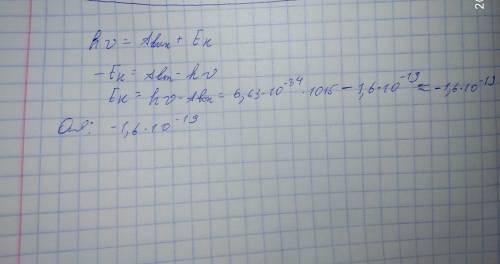 hν = Aвых + Eк
-Eк = Aвых - hν
Eк = hν - Aвых = 6,63·10⁻³⁴ · 1015 - 1,6·10⁻¹⁹ = -1,6·10⁻¹⁹
Отв: -1,6·10⁻¹⁹